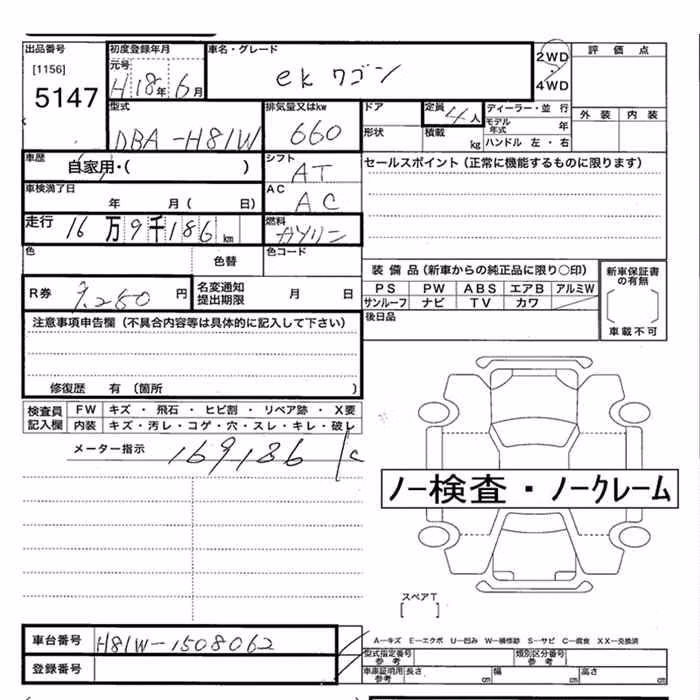 出品番号
[1156]
5147
初度登録年月
元号
H 18年 6月
車名・グレード
ek ワゴン
2WD
・
4WD
評価点
外装 内装
型式
DBA-H81W
排気量又はkw
660
ドア
形状
定員
4人
積載
kg
ディーラー・並行
モデル年式 年
ハンドル 左・右
車歴
自家用・( )
シフト
AT
セールスポイント(正常に機能するものに限ります)
車検満了日
年 月( 日)
AC
AC
走行
16万9千186km
燃料
ガソリン
色
色替
色コード
装備品(新車からの純正品に限り〇印)
PS PW ABS エアB アルミW
サンルーフ ナビ TV カワ
新車保証書の有無
[ ]
車載不可
R券
円
名変通知提出期限
月 日
後日品
注意事項申告欄(不具合内容等は具体的に記入して下さい)
修復歴 有(箇所 )
検査員記入欄
FW キズ・飛石・ヒビ割・リペア跡・X要
内装 キズ・汚レ・コゲ・穴・スレ・キレ・破レ
メーター指示 169186 K
ノー検査・ノークレーム
スペアT
[ ]
A—キズ E—エクボ U—凹み W—補修跡 S—サビ C—腐食 XX—交換済
車台番号
H81W-1508062
登録番号
型式指定番号 参考
類別区分番号 参考
車庫証明用 参考
長さ cm 幅 cm 高さ cm